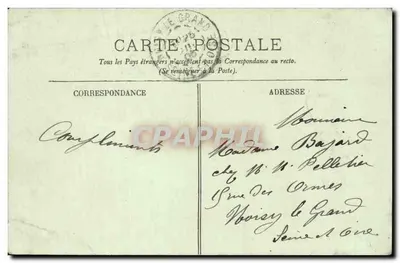 CARTE POSTALE
Tous les Pays étrangers n'acceptent pas la Correspondance au recto.
(Se renseigner à la Poste)
CORRESPONDANCE
ADRESSE
Compliments
Monsieur
Madame Bajard
chez M. M. Pelletier
rue des Ormes
Noisy le Grand
Seine et Oise
CARTES-POSTALES